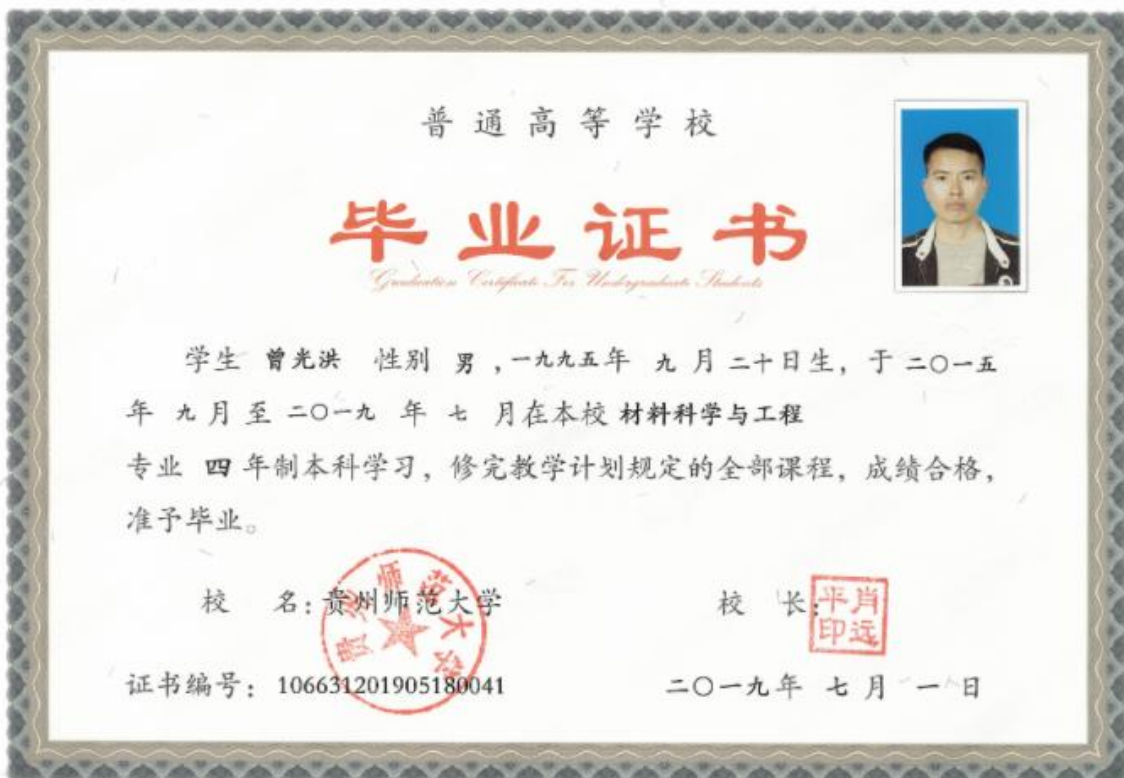 普通高等学校
毕业证书
Graduation Certificate For Undergraduate Students
学生 曾光洪 性别 男，一九九五年 九 月 二十日生，于 二〇一五
年 九 月 至 二〇一九 年 七 月在本校 材料科学与工程
专业 四 年制本科学习，修完教学计划规定的全部课程，成绩合格，
准予毕业。
校 名：贵州师范大学
贵州师范大学
校 长：
肖远平印
证书编号：106631201905180041
二〇一九年 七 月 一 日